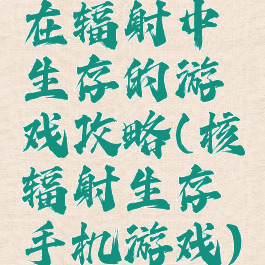 在辐射中
生存的游
戏攻略(核
辐射生存
手机游戏)